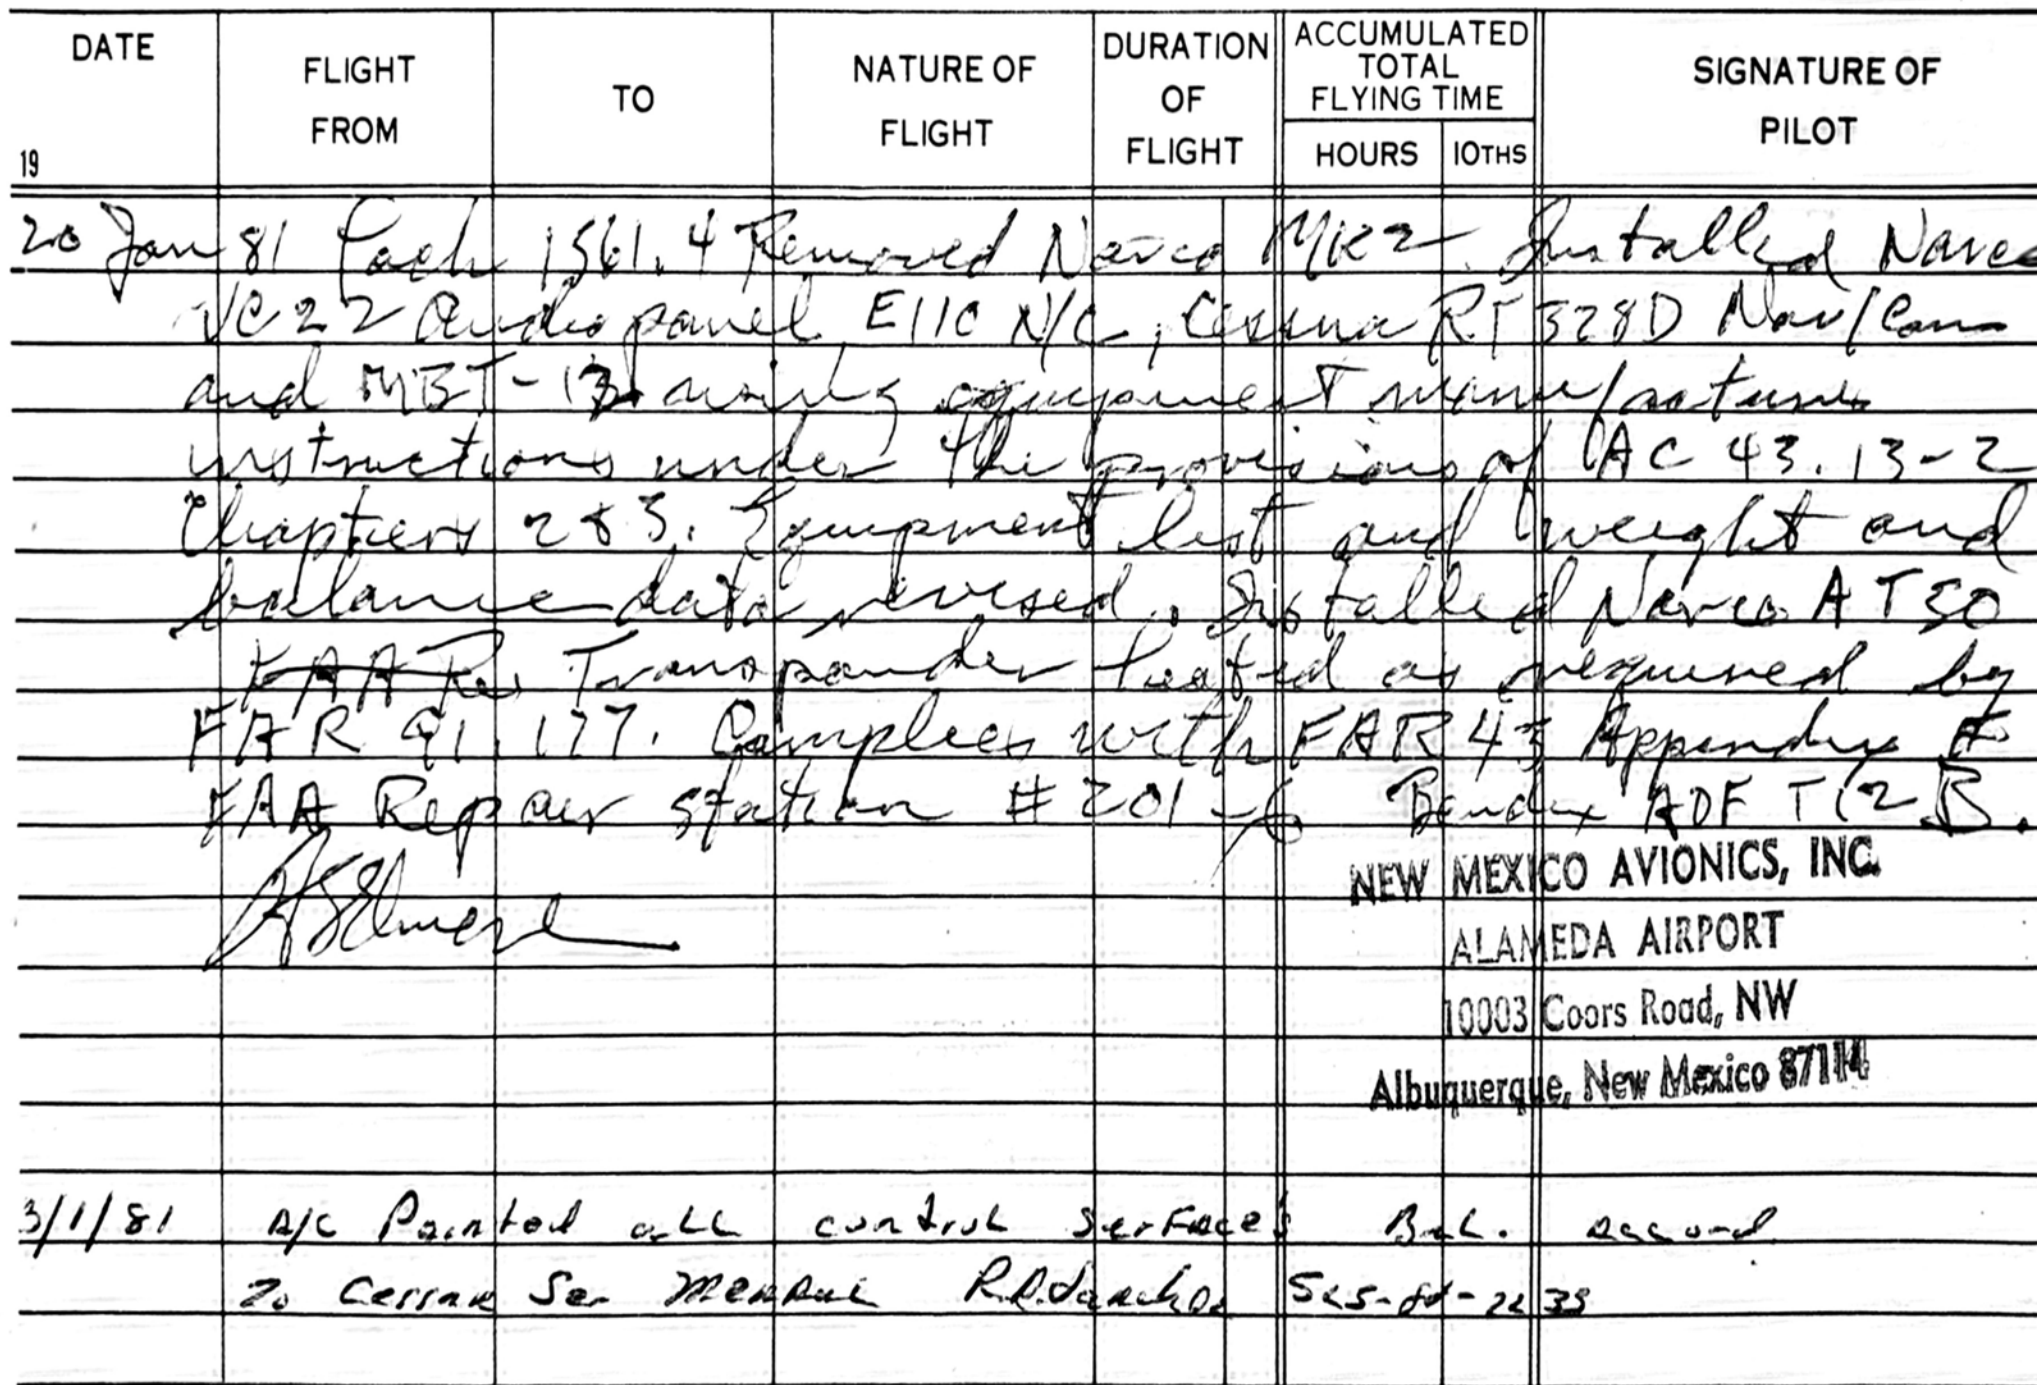 DATE FLIGHT FROM TO NATURE OF FLIGHT DURATION OF FLIGHT ACCUMULATED TOTAL FLYING TIME HOURS 10THS SIGNATURE OF PILOT
19
20 Jan 81 Tach 1561.4 Removed Narco MK2. Installed Narco
VC22 Audio panel E11C N/C, Cessna RT328D Nav/Com
and MBT-13 using equipment manufactures
instructions under the provisions of AC 43.13-2
Chapters 2 & 3. Equipment list and weight and
balance data revised. Installed Narco AT50
FAA Re Transponder tested as required by
FAR 91.177. Complies with FAR 43 Appendix F
FAA Repair station # 201-6 Bendix ADF T12B.
NEW MEXICO AVIONICS, INC.
ALAMEDA AIRPORT
10003 Coors Road, NW
Albuquerque, New Mexico 87114
3/1/81 A/C Painted all control serface's Bal. accord
To Cessna Ser Manual